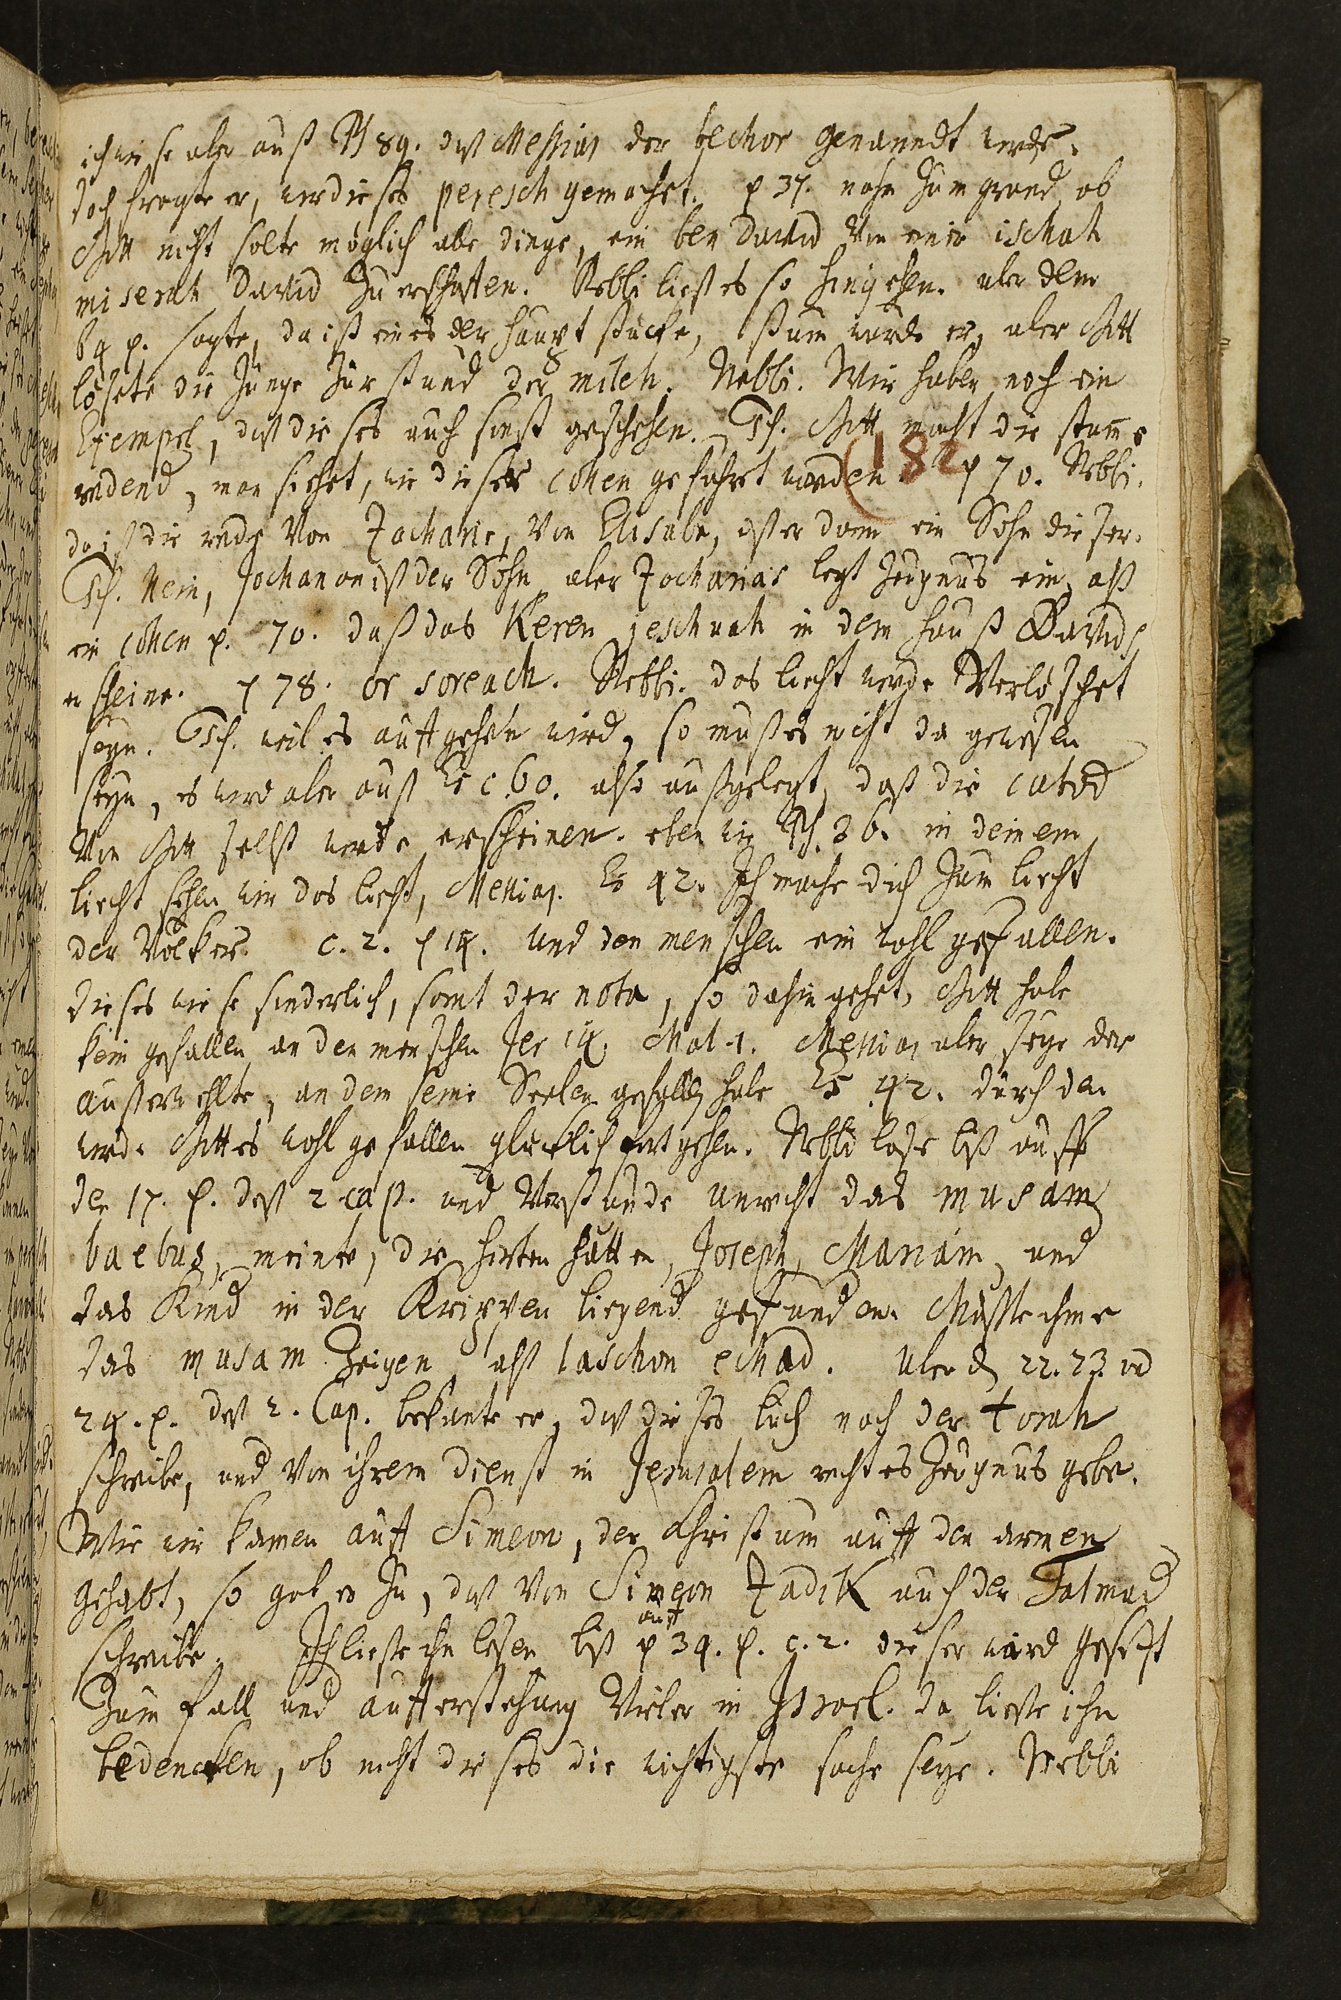 ich wiese aber auß Ps 89. daß Messias der bechor genanndt werde.
doch fragte er, wer dieses peresch gemacht. p 37. nahm zum grund, ob
Gott nicht solte möglich alle dinge, ein ben David von einer ischah
miserah David zu erschaffen. Rebbi ließ es so hingehen. aber dem
64 p. sagte, da ist eines der haupt stücke, stum wurde er, aber Gott
lösete die Zunge zur stund der milch. Rebbi. Wir haben noch ein
Exempel, daß dieses auch sonst geschehen. Ich. Gott macht die stumme
redend, man siehet, wie dieser cohen geführet worden. p 70. Rebbi.
(182
da ist die rede von Zacharie, von Elisabe, ist er dann ein Sohn dieser.
Ich. Nein, Jochanan ist der Sohn, aber Zacharias legt Zeügnus ein, alß
ein cohen p. 70. daß das Keren jeschuah in dem hauß Davids
erscheine. p 78. or soreach. Rebbi. das liecht werde verlöschet
seyn. Ich. weil es auffgehen wird, so muß es nicht da gewesen
seyn, es wird aber auß Es c. 60. also außgelegt, daß die cavod
von Gott selbst werde erscheinen. eben wie Ps. 36. in deinem
liecht sehen wir das liecht, Messias. Es 42. Ich mache dich zum liecht
der Völker. c. 2. p 14. und den menschen ein wohl gefallen.
dieses wiese sonderlich, samt der nota, so dahin gehet, Gott habe
kein gefallen an den menschen Jer 14. Mal. 1. Messias aber seye der
außerwehlte, an dem seine Seelen gefallen habe Es 42. durch den
werde Gottes wohl gefallen glücklich fortgehen. Rebbi lase biß auff
den 17. p. deß 2 cap. und verstunde unrecht das musam
baebus, meinte, die hirten hätten, Joseph, Mariam, und
das Kind in der Krippen liegend gefunden. Mußte ihme
das musam zeigen, alß laschon echad. Uber den 22. 23. vnd
24. p. deß 2. Cap. bekante er, daß dieses buch nach der torah
schreibe, und von ihrem dienst in Jerusalem rechtes Zeügnus gebe.
Wie wir kamen auff Simeon, der Christum auff den armen
gehabt, so gab er zu, daß von Simeon Zadik auch der Talmud
schreibe. Ich ließe ihn lesen biß auff p 34. p. c. 2. dieser wird gesetzt
zum fall und aufferstehung vieler in Israel. da ließe ihn
bedencken, ob nicht dieses die wichtigste sache seye. Rebbi